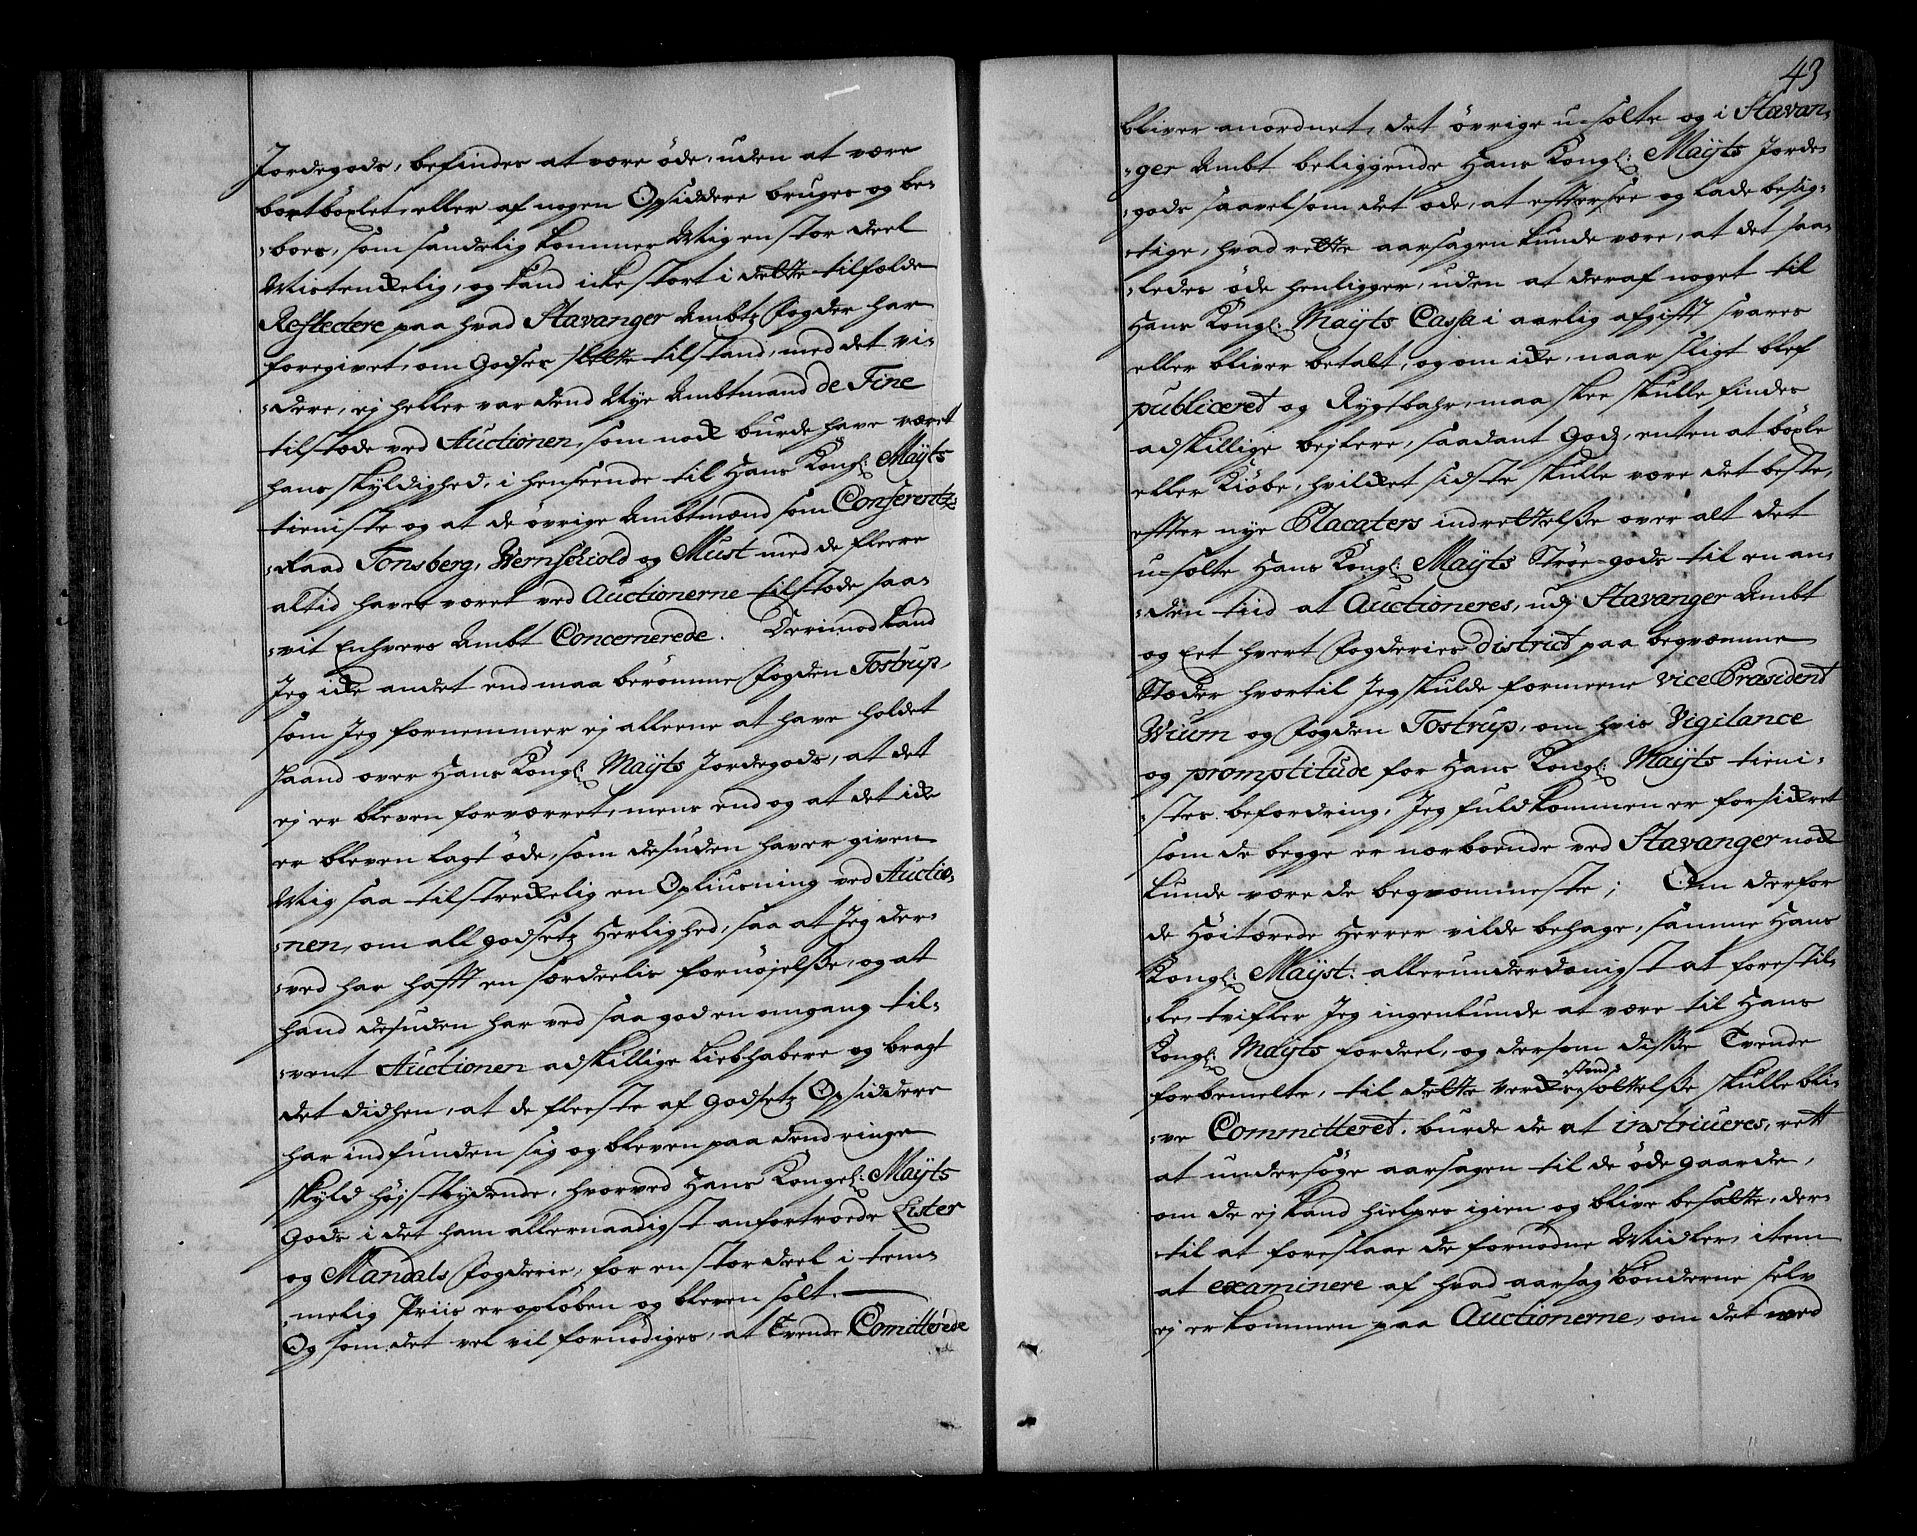 Jordegods, befindes at være öde, uden at være
bortböxlet, eller af nogen Opsiddere bruges og be-
-boes, som sandelig kommer Mig en stor deel
Mistenkelig, og kand icke stort i dette tilfælde
Reflectere paa hvad Stavanger Ambtz Fogder har
foregivet, om Godses slette tilstand, med det vi-
-dere, ej heller var dend Nye Ambtmand de Fine
tilstæde ved Auctionen, som nock burde have været
hans skyldighed, i henseende til Hans Kongl: Maÿts
tieniste og at de övrige Ambtmænd som Conferentz-
-Raad Tonsberg, Wernschiold og Must med de fleere
altid haver været ved Auctionerne tilstæde saa-
-vit Enhvers Ambt Concernerede. Derimod kand
Jeg icke andet end maa berömme Fogden Tostrup,
som Jeg fornemmer ej alleene at have holdet
haand over Hans Kongl: Maÿts Jordegods, at det
ej er bleven forværret, mens end og at det icke
er bleven lagt öde, som desuden haver given
Mig saa tilstreckelig en Opliusning ved Auctio-
-nen, om all godsetz Herlighed, saa at Jeg der-
-ved har hafft en særdeelis fornöjelsse, og at
hand desuden har ved saa god en omgang til-
-vent Auctionen adskillige Liebhabere og bragt
det didhen, at de fleeste af Godsetz Opsiddere
har indfunden sig og bleven paa dend ringe
skyld höjstbydende, hvorved Hans Kongel: Maÿts
Gods i det ham allernaadigst anfortroede Lister
og Mandals Fogderie, for en stor deel i tem-
melig Priis er oplöben og bleven solt.
Og som det vel vil fornödiges, at Tvende Comitterede
43
bliver anordnet, det övrige u-solte og i Stavan-
-ger Ambt beliggende Hans Kongl: Maÿts Jorde-
-gods saavelsom det öde, at efftersee og lade besig-
-tige, hvad rette aarsagen kunde være, at det saa-
-ledes öde henligger, uden at deraf noget til
Hans Kongl: Maÿts Cassa i aarlig afgifft svares
eller bliver betalt, og om icke, naar sligt blef
publiceret og Rygtbahr, maa skee skulle findes
adskillige bejlere, saadant Gods, enten at böxle
eller Kiöbe, hvilcket sidste skulle være det beste,
effter nye Placaters indrettelsse over alt det
u-solte Hans Kongl: Maÿts Ströe-gods til en an-
-den tiid at Auctioneres, udj Stavanger Ambt
og Eet hvert Fogderies district paa beqvæmme
Stæder hvortil Jeg skulde formeene vice Præsident
Wium og Fogden Tostrup, om hvis Vigilance
og promptitude for Hans Kongl: Maÿts tieni-
-stes befordring, Jeg fuldkommen er forsickret
som de begge er nærboende ved Stavanger nock
kunde være de beqvæmmeste; Om derfor
de Höitærede Herrer vilde behage, samme Hans
Kongl: Maÿst: allerunderdanigst at forestil-
-le, tvifler Jeg ingenlunde at være til Hans
Kongl: Maÿts fordeel, og dersom disse Tvende
forbemelte, til dette Vercks stands
sættelsse skulle bli-
-ve Committeret, burde de at instrueres, rett
at undersöge aarsagen til de öde gaarde,
om de ej kand hielpes igien og blive besatte, der-
-til at foreslaae de fornödne Midler, item
at examinere af hvad aarsag bönderne selv
ej er kommen paa Auctionerne, om det ved